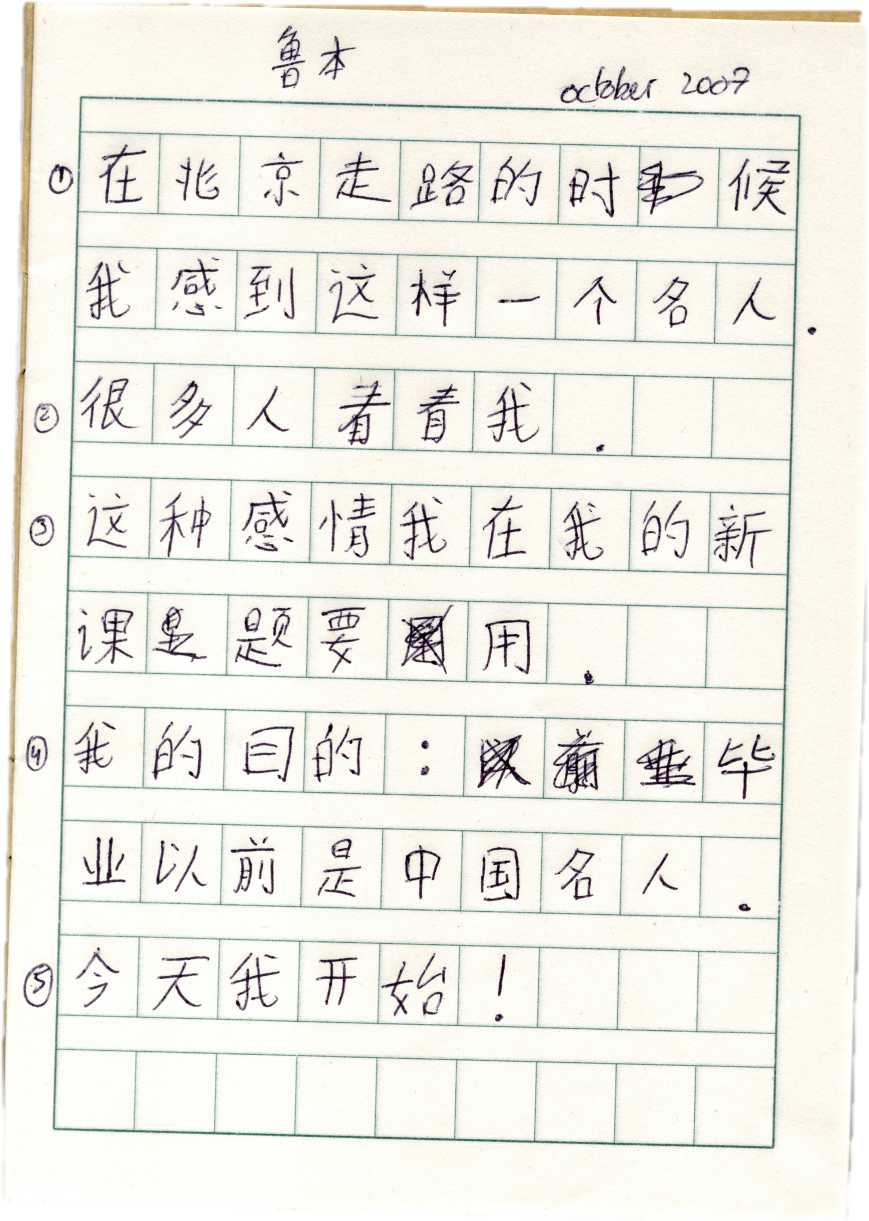 鲁本
october 2007
① 在北京走路的时候
我感到这样一个名人.
② 很多人看看我.
③ 这种感情我在我的新
课是题要用.
④ 我的目的:毕
业以前是中国名人.
⑤ 今天我开始!